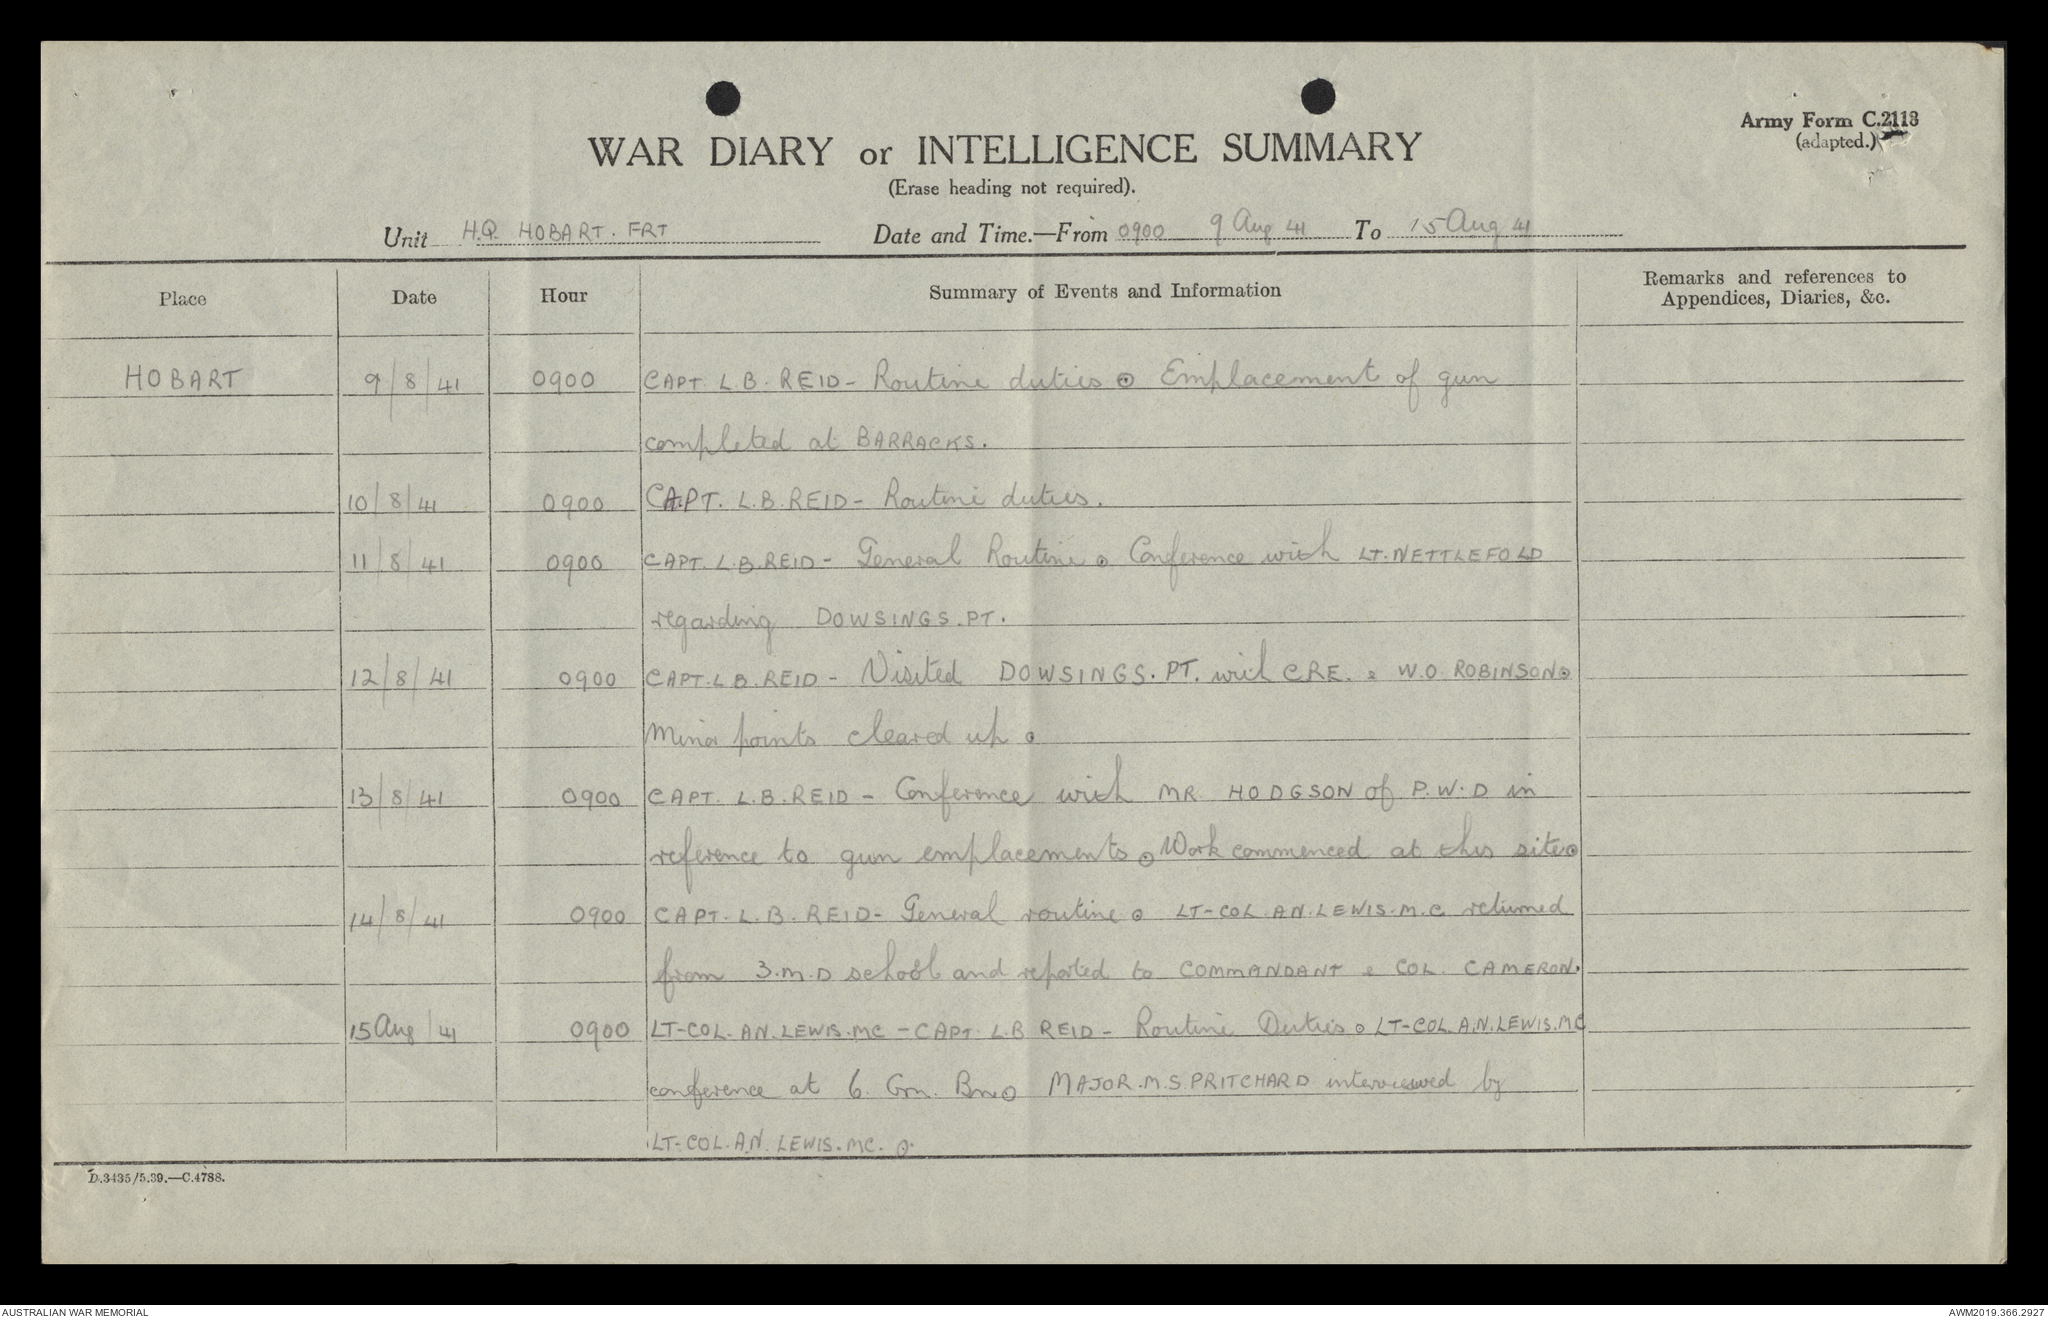 Army Form C.2118
(adapted.)
WAR DIARY or INTELLIGENCE SUMMARY
(Erase heading not required).
Unit H.Q. HOBART. FRT Date and Time.—From 0900 9 Aug 41 To 15 Aug 41
Place Date Hour Summary of Events and Information Remarks and references to
Appendices, Diaries, &c.
HOBART 9/8/41 0900 CAPT. L.B. REID - Routine duties ⊙ Emplacement of gun
completed at BARRACKS.
10/8/41 0900 CAPT. L.B. REID - Routine duties.
11/8/41 0900 CAPT. L.B. REID - General Routine ⊙ Conference with LT. NETTLEFOLD
regarding DOWSINGS. PT.
12/8/41 0900 CAPT. L B. REID - Visited DOWSINGS. PT. with CRE. & W.O. ROBINSON ⊙
Minor points cleared up ⊙
13/8/41 0900 CAPT. L.B. REID - Conference with MR HODGSON of P.W.D in
reference to gun emplacements ⊙ Work commenced at this site ⊙
14/8/41 0900 CAPT. L. B. REID - General routine ⊙ LT-COL. A.N. LEWIS. M.C returned
from 3.M.D school and reported to COMMANDANT & COL. CAMERON.
15 Aug/41 0900 LT-COL. A.N. LEWIS. MC - CAPT. L.B REID - Routine Duties ⊙ LT-COL. A.N. LEWIS. MC
conference at 6. Grn. Bn ⊙ MAJOR. M.S. PRITCHARD interviewed by
LT-COL. A.N. LEWIS. MC. ⊙
D.3435/5.39.—C.4788.
AUSTRALIAN WAR MEMORIAL AWM2019.366.2927